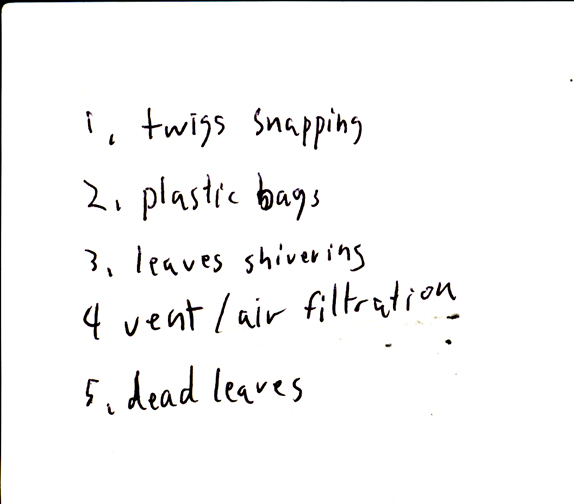 1. twigs snapping
2. plastic bags
3. leaves shivering
4 vent/air filtration
5. dead leaves